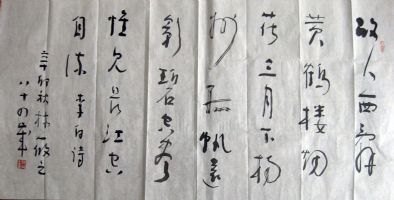 故人西辞
黄鶴楼烟
花三月下扬
州孤帆远
影碧空尽
惟见长江天
际流 李白诗
辛卯秋林筱之
八十四岁